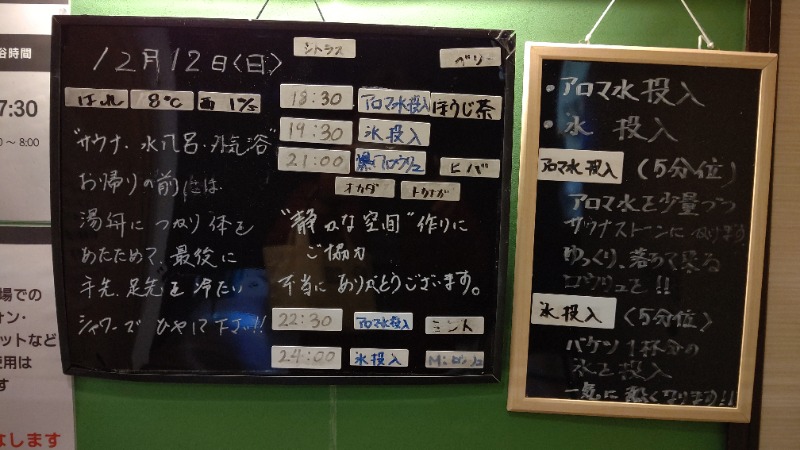 浴時間
7:30
0〜8:00
場での
オン・
ットなど
使用は
す
なします
12月12日(日)
はれ 8℃ 西 1㍍
"サウナ・水風呂・外気浴"
お帰りの前には
湯舟につかり体を
あたためて、最後に
手先、足先を冷たい
シャワーでひやして下さい!!
シトラス
18:30 アロマ水投入 ほうじ茶
19:30 氷投入
21:00 爆アロウリュ ヒバ
オカダ トクナガ
"静かな空間"作りに
ご協力
本当にありがとうございます。
22:30 アロマ水投入 ミント
24:00 氷投入
・アロマ水投入
・氷 投入
アロマ水投入 (5分位)
アロマ水を少量づつ
サウナストーンにかけます
ゆっくり、落ちて来る
ロウリュを!!
氷投入 (5分位)
バケツ1杯分の
氷を投入
一気に熱くなります!!